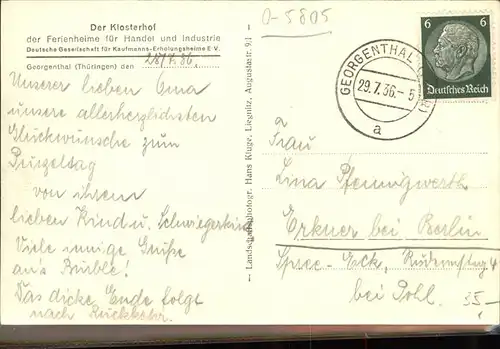 O-5805
Der Klosterhof
der Ferienheime für Handel und Industrie
Deutsche Gesellschaft für Kaufmanns-Erholungsheime E.V.
Georgenthal (Thüringen) den 28/7.36.
Unserer lieben Oma
unsere allerherzlichsten
Glückwünsche zum
Purzeltag
von ihrem
lieben Kind u. Schwiegerkind
Viele innige Grüße
an's
Das dicke Ende folgt
nach Rückkehr.
– Landschaftsphotogr. Hans Kluge, Liegnitz, Augustastr. 9 I –
GEORGENTHAL
29.7.36.-5
a
6 6
Deutsches Reich
Frau
Lina Pfennigwerth
Erkner bei Berlin
Spree-Eck,
bei Pohl.
35,-